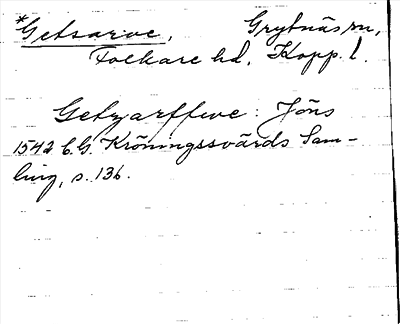 *Getsarve, Grytnäs sn,
Folkare hd, Kopp. l.
Getzarffwe: Jöns
1542 C.G. Kröningssvärds Sam-
ling, s. 136.